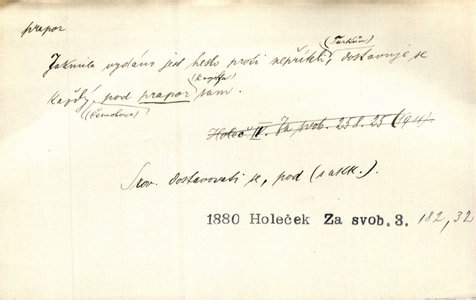 prapor
Jakmile vydáno jest heslo proti nepříteli, (Turkům) dostavuje se
každý (Černohorec) pod prapor (kapitán) sám.
Holeč IV. Za svob. 258. 25 (1911)
Srov. dostavovati se, pod (s akk.).
1880 Holeček Za svob. 3. 182, 32